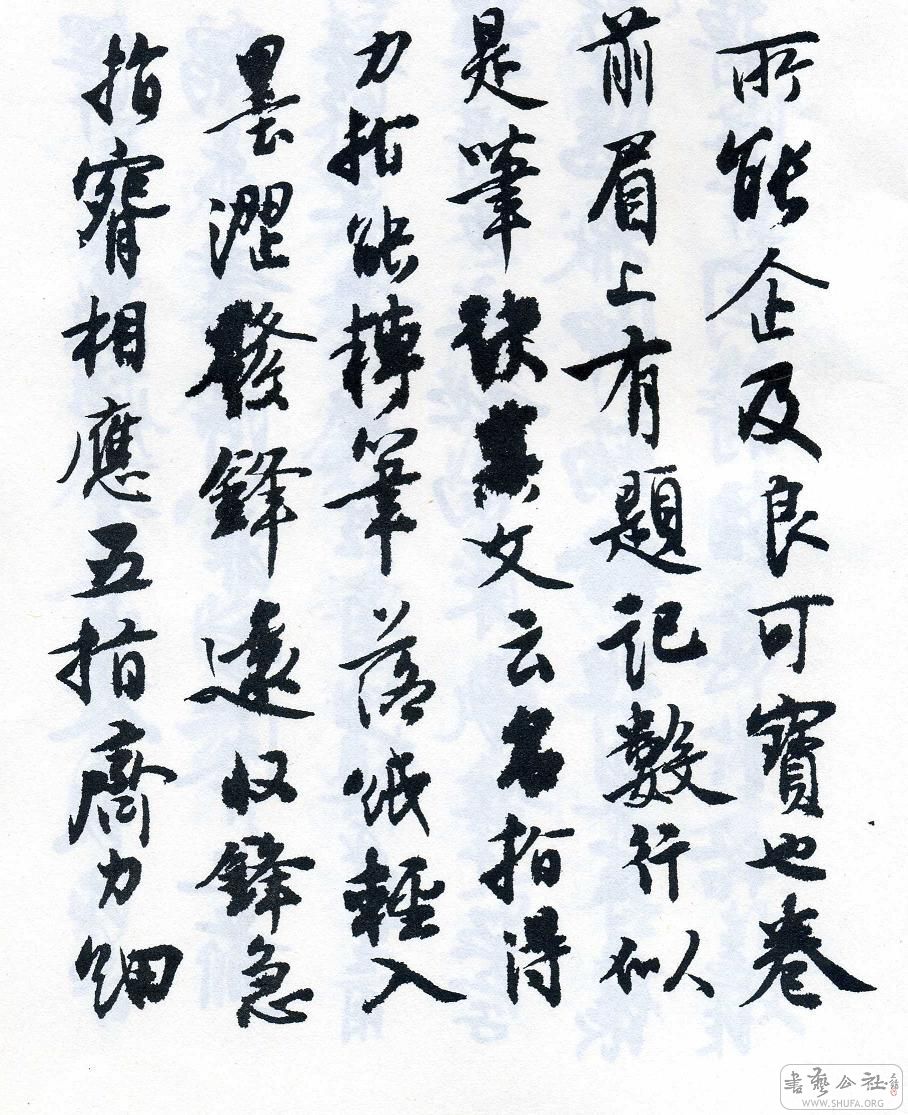 所能企及良可寶也卷
前眉上有題記數行似
是筆訣其文云名指得
力指能轉筆落紙輕入
墨澀發鋒遠收鋒急
指腕相應五指齊力細
書藝公社
WWW.SHUFA.ORG